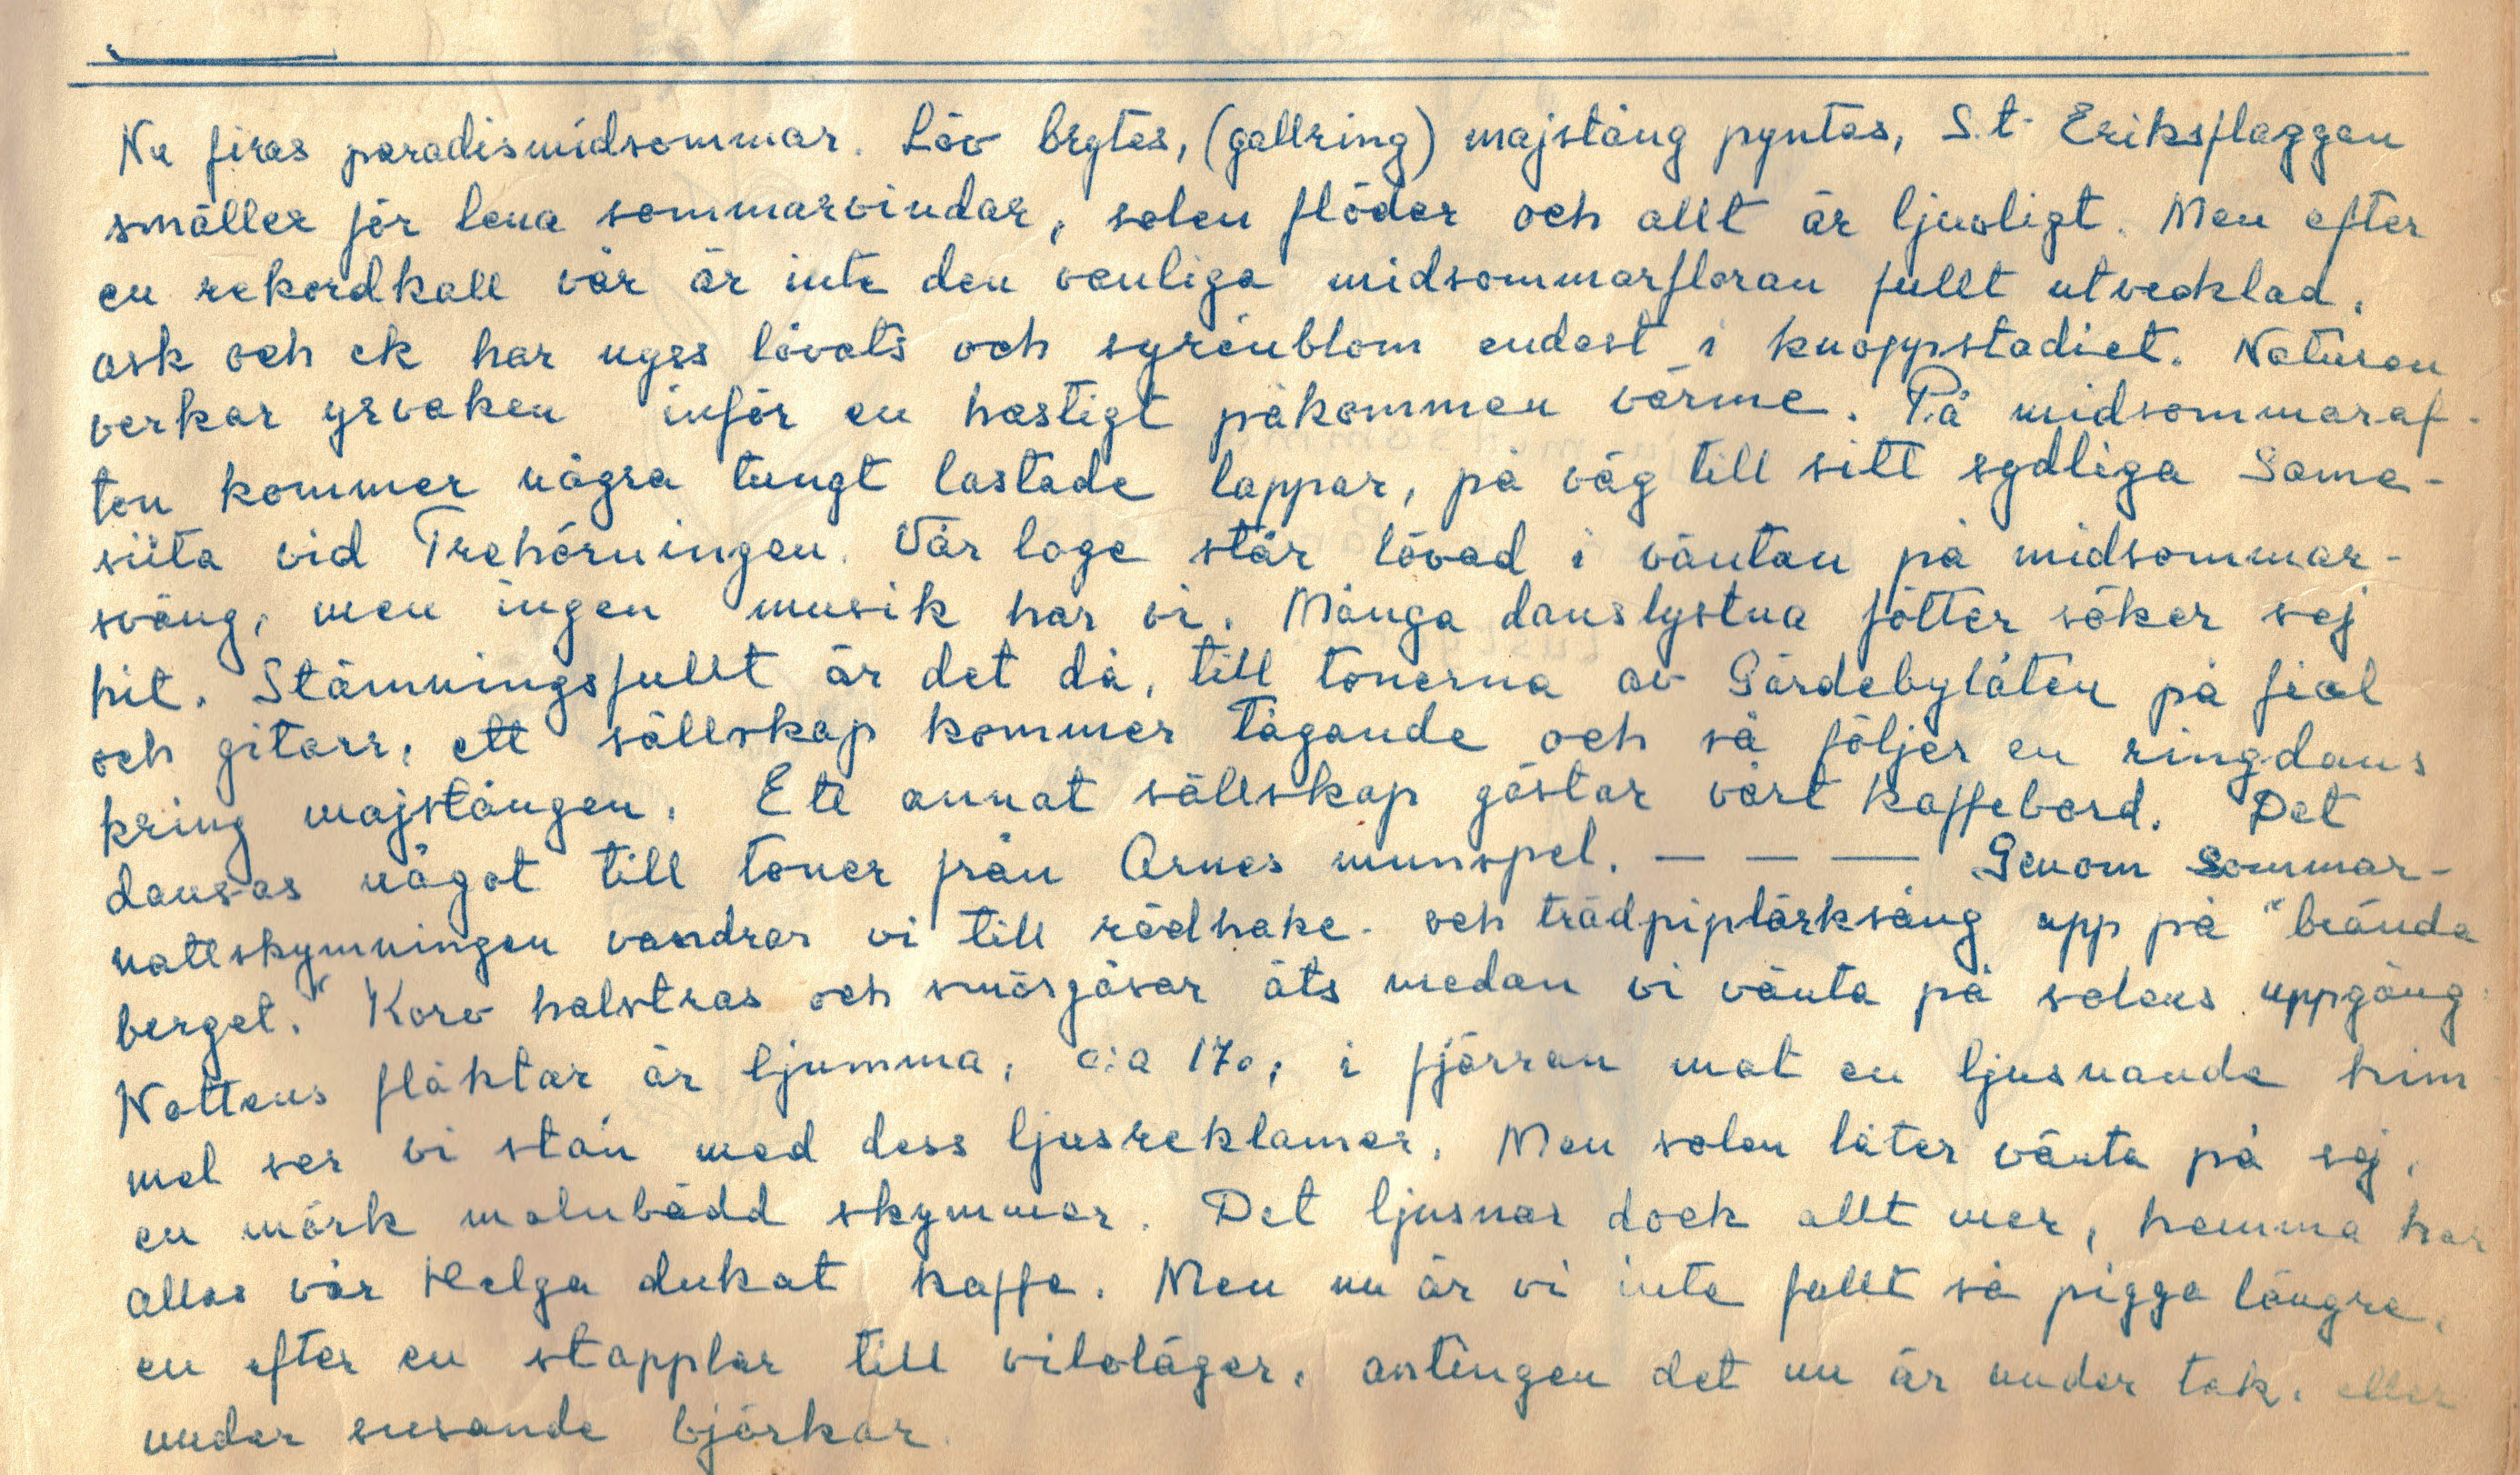 Nu firas paradismidsommar. Löv brytes, (gallring) majstång pyntas, S.t Eriksflaggan
smäller för lena sommarvindar, solen flödar och allt är ljuvligt. Men efter
en rekordkall vår är inte den vanliga midsommarfloran fullt utvecklad.
ask och ek har nyss lövats och syrénblom endast i knoppstadiet. Naturen
verkar yrvaken inför en hastigt påkommen värme. På midsommaraf-
ton kommer några tungt lastade lappar, på väg till sitt sydliga Same-
siita vid Trehörningen. Vår loge står lövad i väntan på midsommar-
sväng, men ingen musik har vi. Många danslystna fötter söker sej
hit. Stämningsfullt är det då, till tonerna av Gärdebylåten på fiol
och gitarr, ett sällskap kommer tågande och så följer en ringdans
kring majstången. Ett annat sällskap gästar vårt kaffebord. Det
dansas något till toner från Arnes munspel. — — — Genom sommar-
nattskymningen vandrar vi till rödhake- och trädpiplärksång upp på "brända
berget." Korv halstras och smörgåsar äts medan vi vänta på solens uppgång.
Nattens fläktar är ljumma, c:a 17o, i fjärran mot en ljusnande him
mel ser vi stan med dess ljusreklamer. Men solen låter vänta på sej,
en mörk molnbädd skymmer. Det ljusnar dock allt mer, hemma har
allas vår Helga dukat kaffe. Men nu är vi inte fullt så pigga längre,
en efter en stapplar till viloläger, antingen det nu är under tak, eller
under susande björkar.